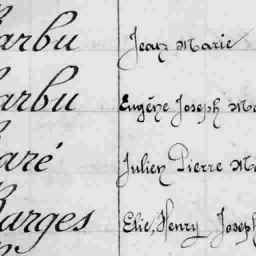 Barbu Jean Marie
Barbu Eugène Joseph Ma
Baré Julien Pierre Ma
Barges Elie, Henry Joseph